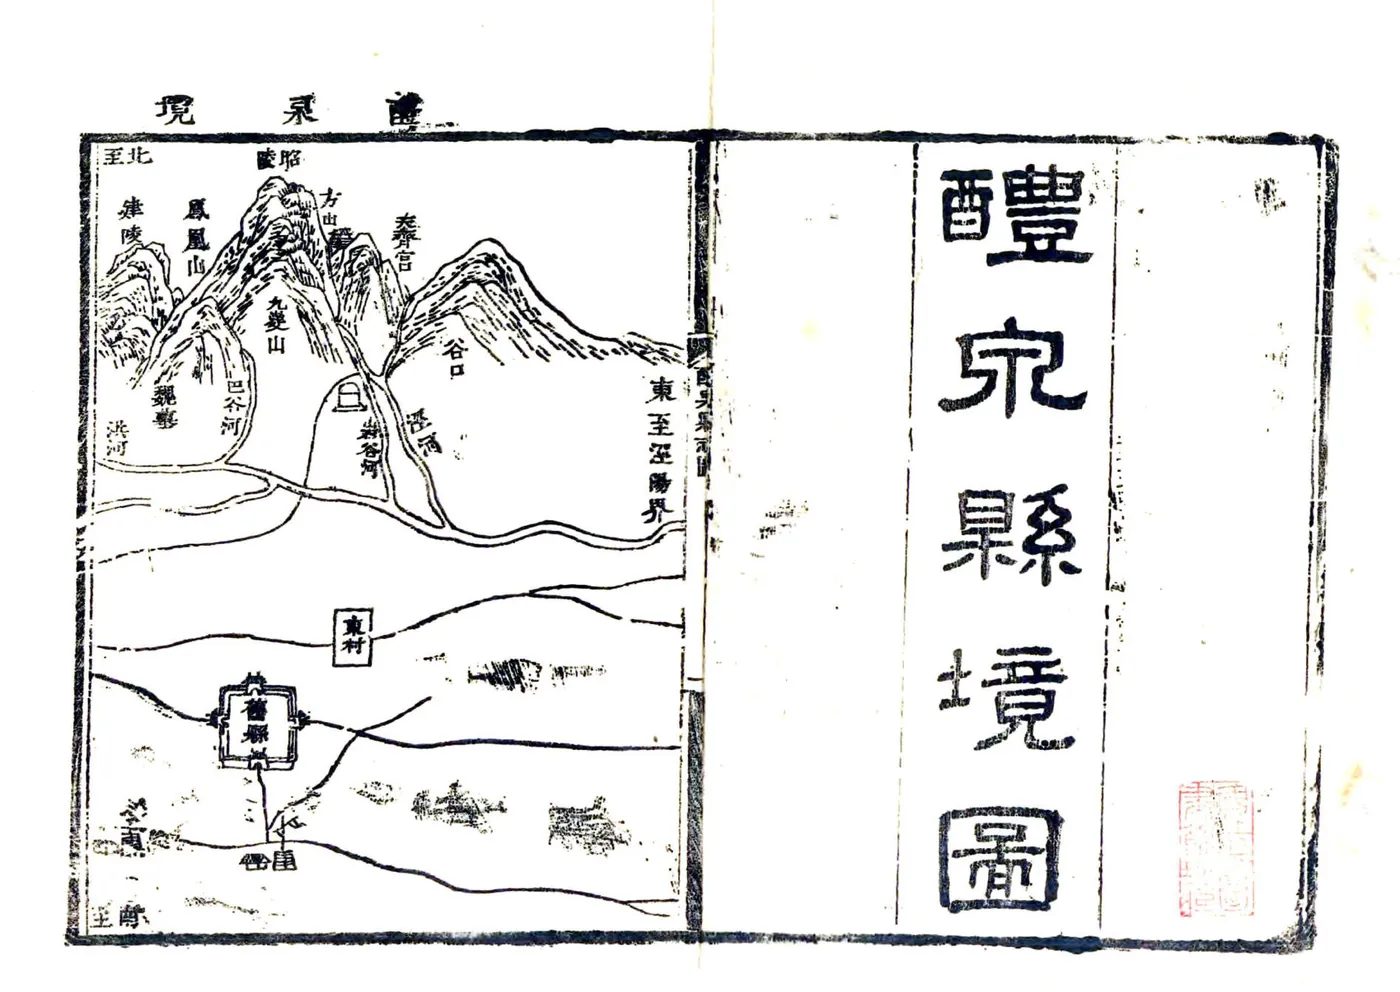 醴泉縣境圖
醴泉境
北至
昭陵
方山
泰齊宮
建陵
鳳凰山
九嵕山
谷口
東至涇陽界
魏墓
巴谷河
洪河
涇河
東村
舊縣
南至